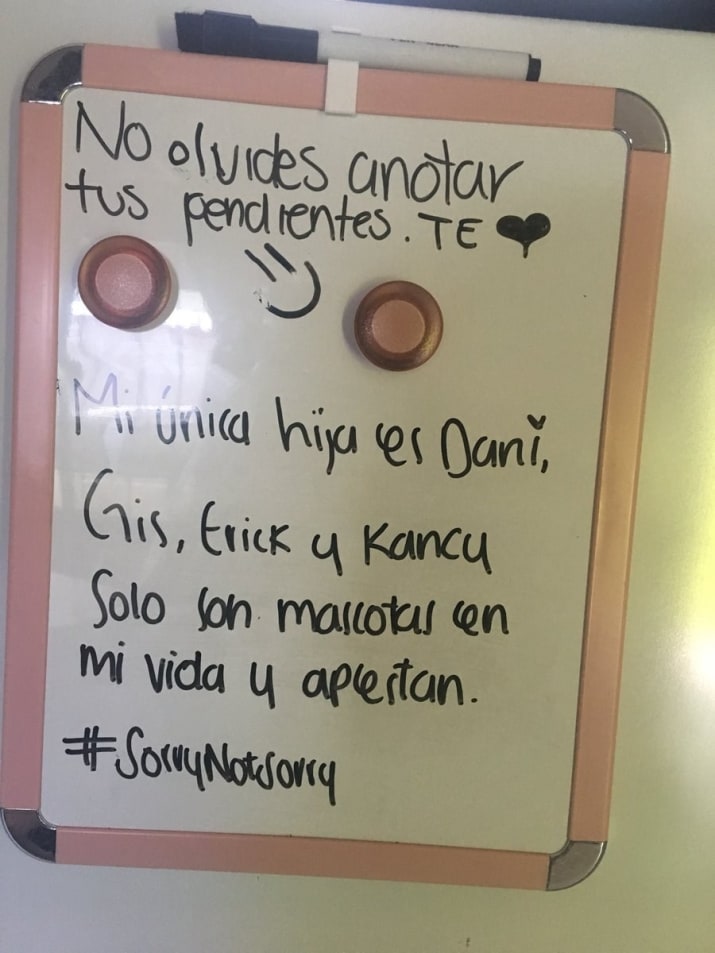 No olvides anotar
tus pendientes. TE ♥
Mi única hija es Dani,
Gis, Erick y Kancy
Solo son mascotas en
mi vida y apestan.
#SorryNotSorry